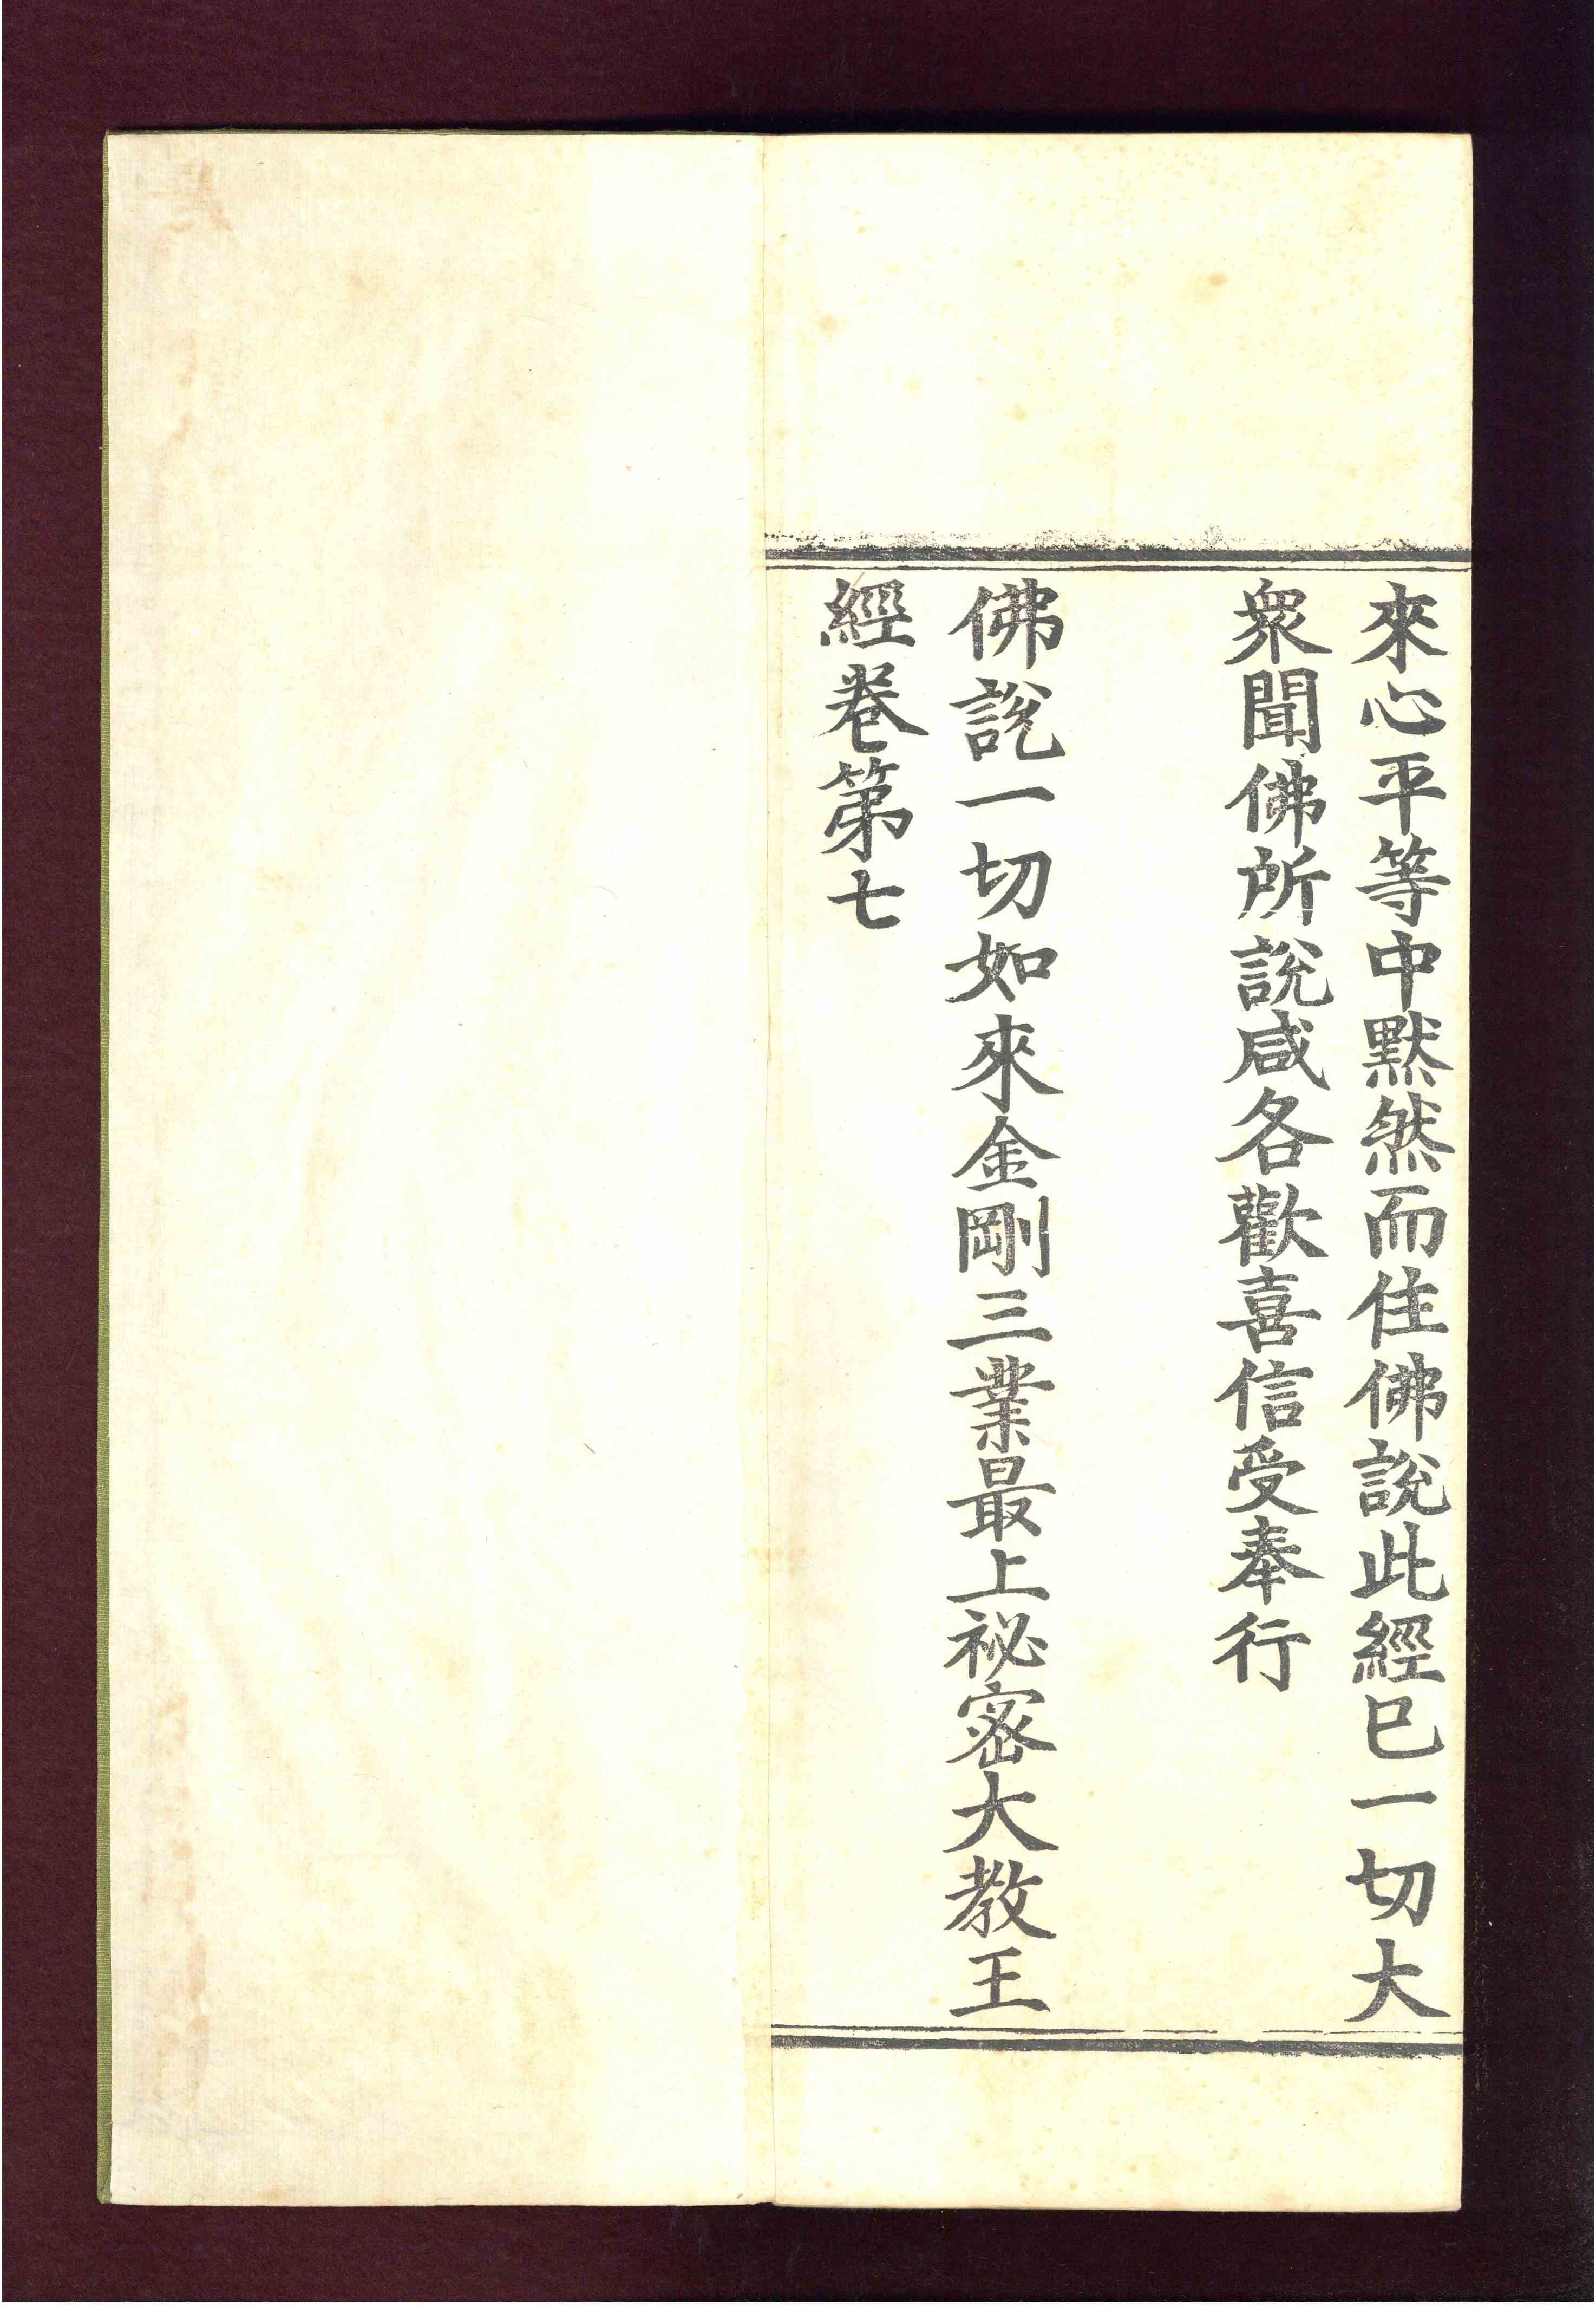 來心平等中黙然而住佛說此經已一切大
衆聞佛所說咸各歡喜信受奉行
佛說一切如來金剛三業最上祕密大教王
經卷第七